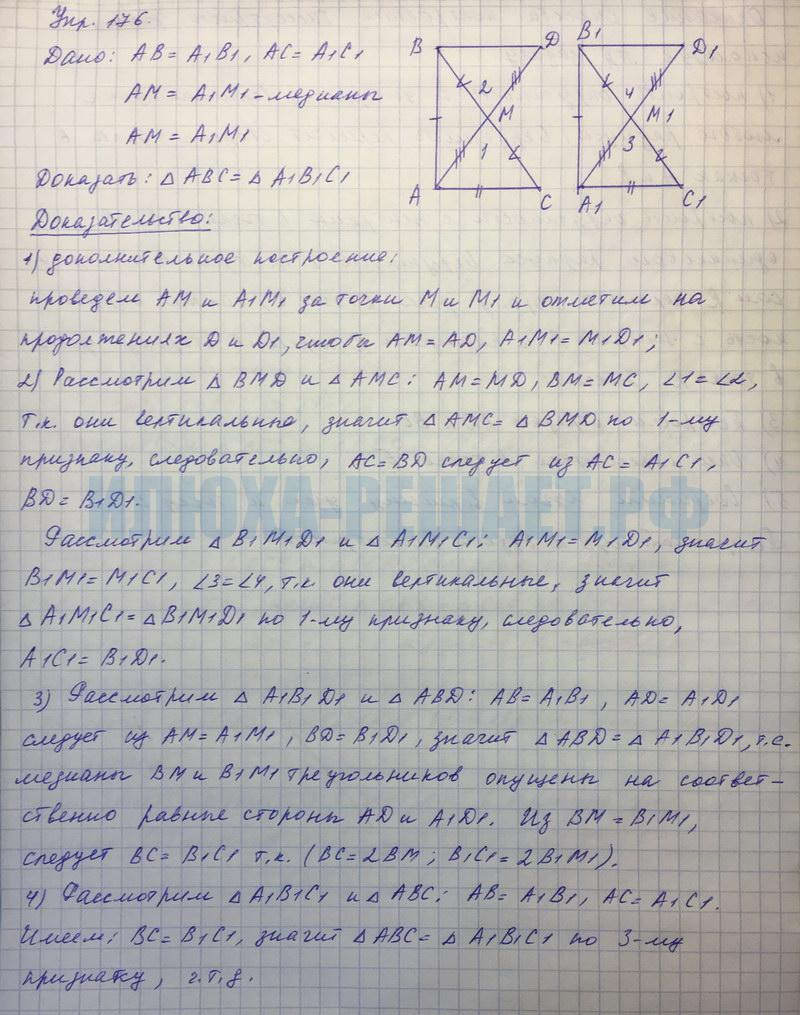 Упр. 176.
Дано: AB = A1B1, AC = A1C1
AM = A1M1 - медианы
AM = A1M1
Доказать: △ ABC = △ A1B1C1
B D B1 D1
2 4
M M1
1 3
A C A1 C1
Доказательство:
1) дополнительное построение:
проведем AM и A1M1 за точки M и M1 и отметим на
продолжениях D и D1, чтобы AM = AD, A1M1 = M1D1;
2) Рассмотрим △ BMD и △ AMC: AM = MD, BM = MC, ∠1 = ∠2,
т.к. они вертикальные, значит △ AMC = △ BMD по 1-му
признаку, следовательно, AC = BD следует из AC = A1C1,
BD = B1D1.
ИЛЮХА-РЕШАЕТ.РФ
Рассмотрим △ B1M1D1 и △ A1M1C1: A1M1 = M1D1, значит
B1M1 = M1C1, ∠3 = ∠4, т.к. они вертикальные, значит
△ A1M1C1 = △ B1M1D1 по 1-му признаку, следовательно,
A1C1 = B1D1.
3) Рассмотрим △ A1B1D1 и △ ABD: AB = A1B1, AD = A1D1
следует из AM = A1M1, BD = B1D1, значит △ ABD = △ A1B1D1, т.е.
медианы BM и B1M1 треугольников опущены на соответ-
ственно равные стороны AD и A1D1. Из BM = B1M1,
следует BC = B1C1 т.к. (BC = 2BM; B1C1 = 2B1M1).
4) Рассмотрим △ A1B1C1 и △ ABC: AB = A1B1, AC = A1C1.
Имеем: BC = B1C1, значит △ ABC = △ A1B1C1 по 3-му
признаку, ч.т.д.